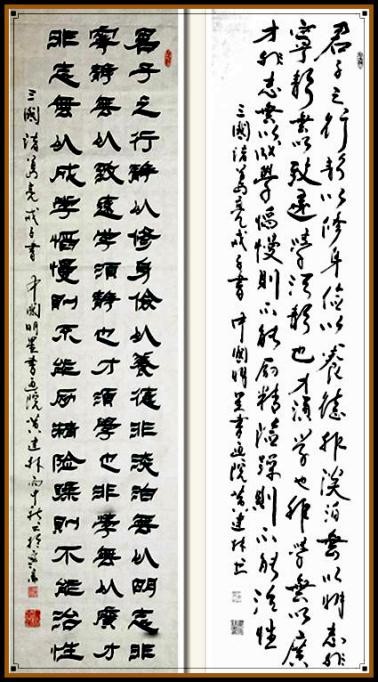 君子之行靜以修身儉以養德非淡泊無以明志非
寧靜無以致遠學須靜也才須學也非學無以廣
才非志無以成學慆慢則不能励精險躁則不能治性
三國諸葛亮戒子書 中國明星書画院黄建林書
君子之行靜以修身儉以養德非淡泊無以明志非
寧靜無以致遠學須靜也才須學也非學無以廣才
非志無以成學慆慢則不能励精險躁則不能治性
三國諸葛亮戒子書 中國明星書画院黄建林丙申秋